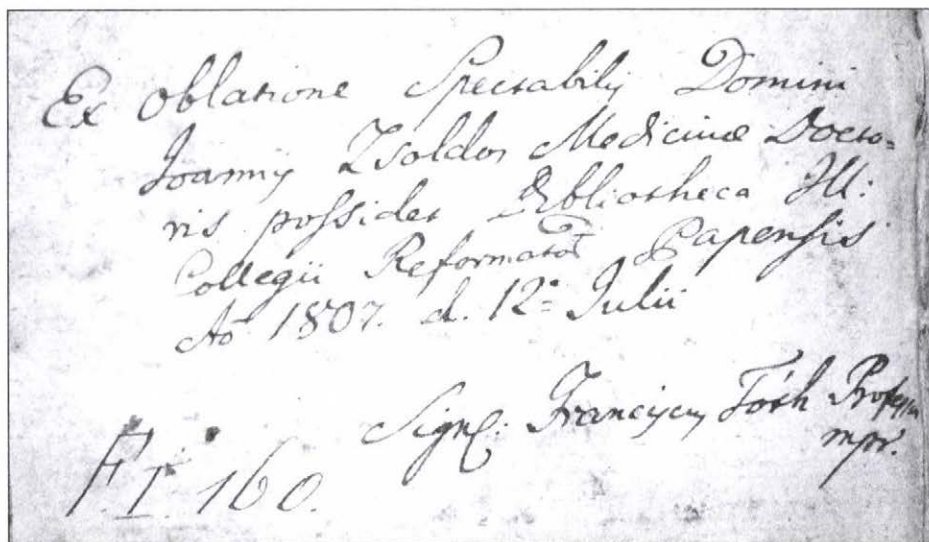 Ex Oblatione Spectabilis Domini
Joannis Zsoldos Medicinæ Docto=
ris possidet Bibliotheca Ill:
Collegii Reformator Papensis
Aõ 1807. d. 12ª Julii
Signũ: Franciscus Tóth Professor
mpr.
F.I. 160.